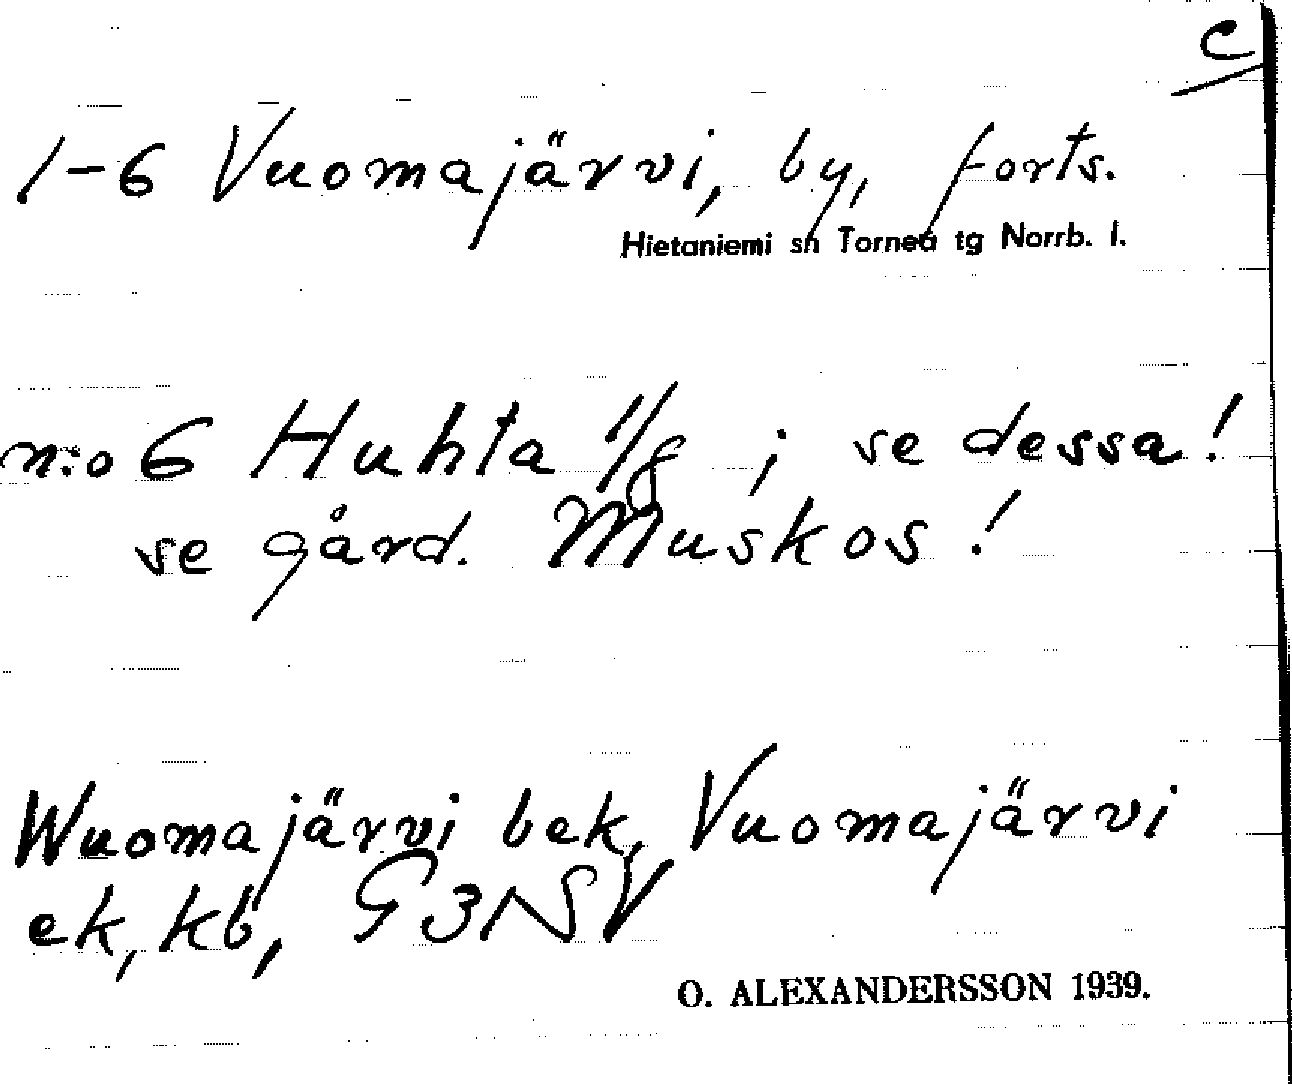 c
1-6 Vuomajärvi, by, forts.
Hietaniemi sn Torneå tg Norrb. l.
n:o 6 Huhta 1/8 ; se dessa!
se gård. Muskos!
Wuomajärvi bek, Vuomajärvi
ek, kb, G3NSV
O. ALEXANDERSSON 1939.